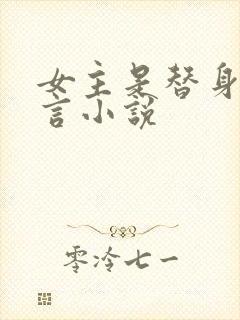 女主是替身
言小说
零冷七一